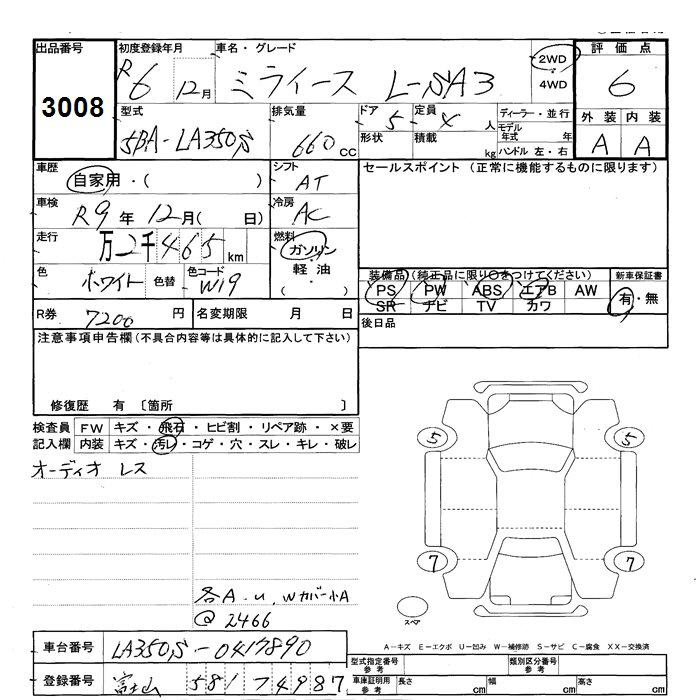 出品番号 3008
初度登録年月 R6 12月
車名・グレード ミライース L-SA3
2WD 4WD
評価点 6
外装 内装
A A
型式 5BA-LA350S
排気量 660 cc
ドア 5
形状
定員 4 人
積載 kg
ディーラー・並行
モデル年式 年
ハンドル 左・右
車歴 自家用・( )
シフト AT
セールスポイント (正常に機能するものに限ります)
車検 R9年 12月( 日)
冷房 AC
走行 万2千465 km
燃料 ガソリン
軽油
( ・ )
色 ホワイト
色替
色コード W19
装備品(純正品に限り○をつけてください)
PS PW ABS エアB AW
SR ナビ TV カワ
新車保証書
有・無
R券 7200 円
名変期限 月 日
後日品
注意事項申告欄(不具合内容等は具体的に記入して下さい)
修復歴 有 〔箇所 〕
検査員 FW キズ・飛石・ヒビ割・リペア跡・×要
記入欄 内装 キズ・汚レ・コゲ・穴・スレ・キレ・破レ
オーディオレス
各A.U.Wカバー小A
@2466
5 5
7 7
スペア
A-キズ E-エクボ U-凹み W-補修跡 S-サビ C-腐食 XX-交換済
車台番号 LA350S-0417890
登録番号 富士山 581 74987
型式指定番号 参考
類別区分番号 参考
車庫証明用 参考
長さ cm 幅 cm 高さ cm